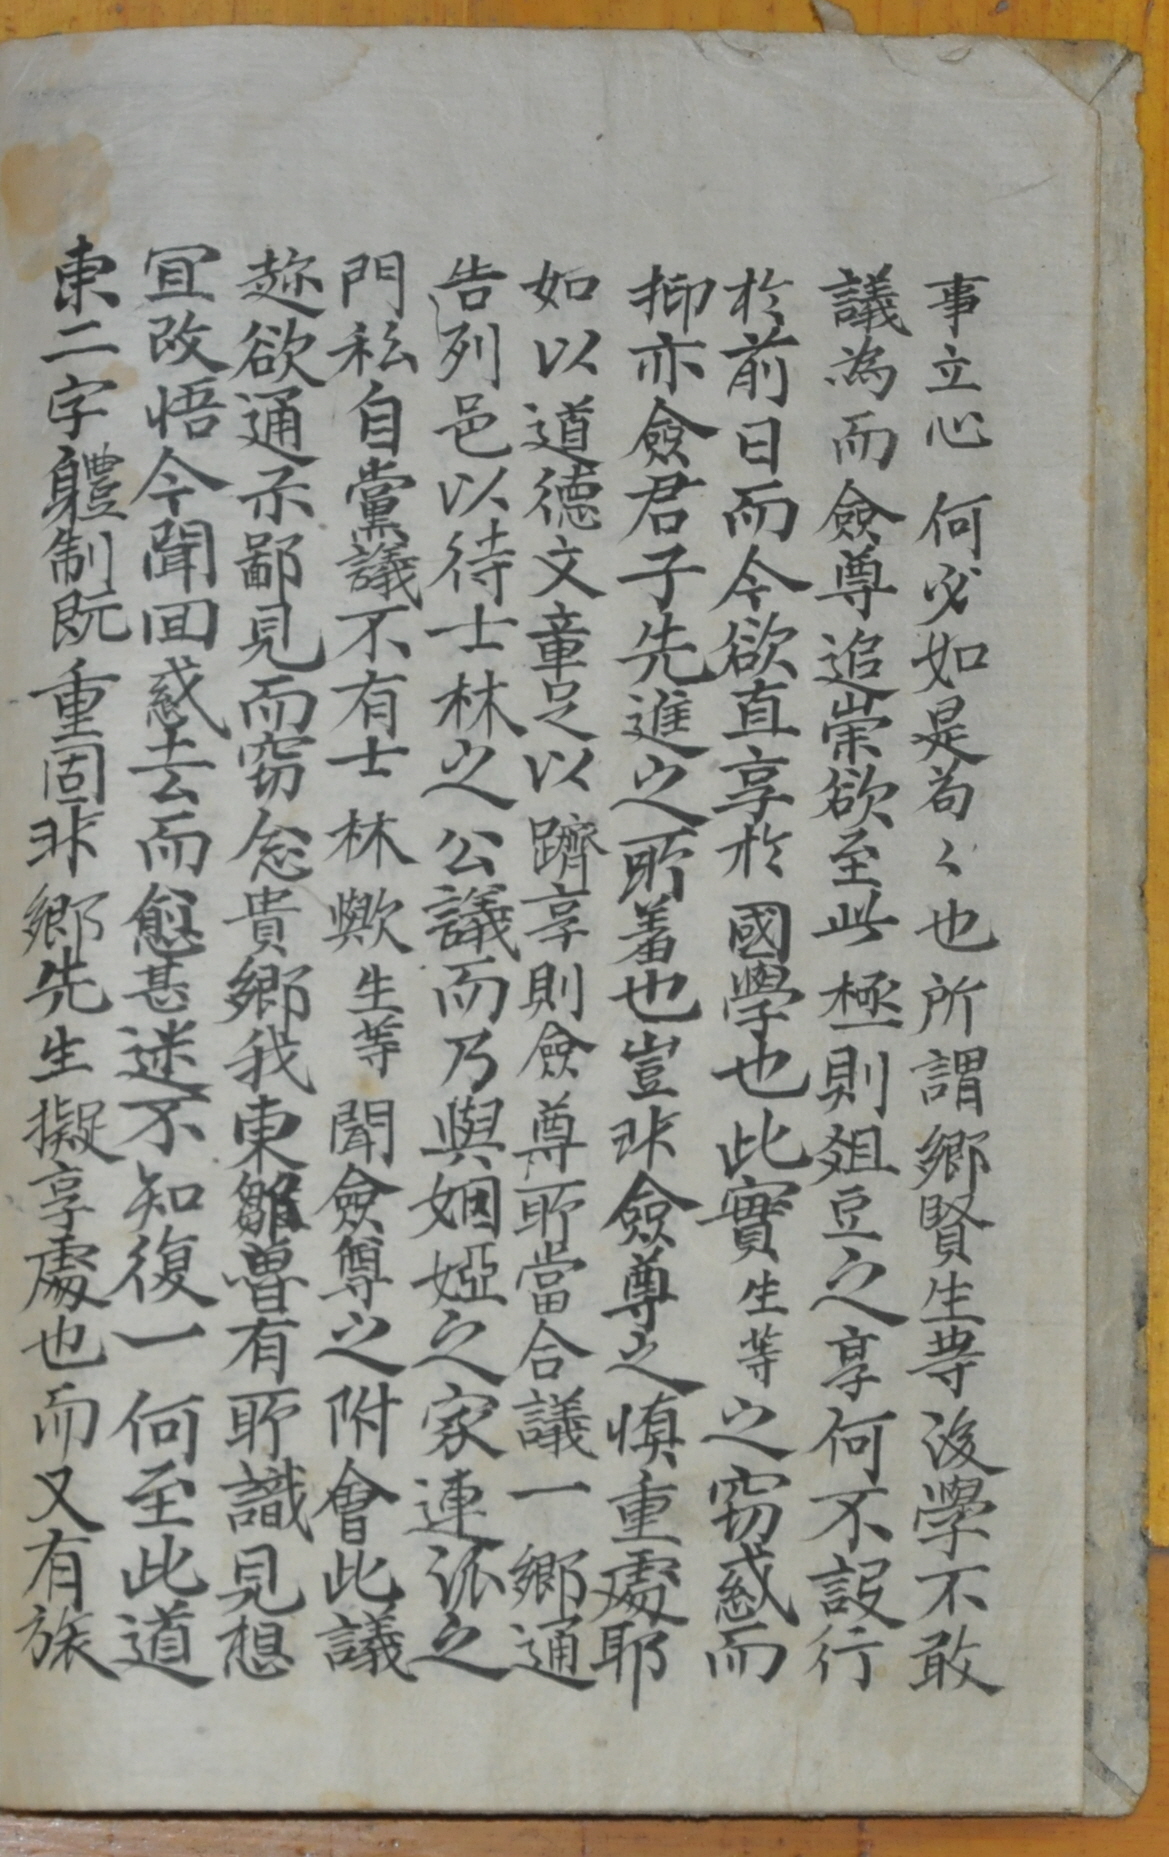 事立心何必如是苟〻也所謂鄕賢生等後學不敢
議爲而僉尊追崇欲至此極則俎豆之享何不設行
於前日而今欲直享於國學也此實生等之窃惑而
抑亦僉君子先進之所羞也豈非僉尊之愼重處耶
如以道德文章足以躋享則僉尊所當合議一鄕通
告列邑以待士林之公議而乃與姻婭之家連派之
門私自黨議不有士林歟生等聞僉尊之附會此議
玆欲通示鄙見而窃念貴鄕我東雛魯有所識見想
冝改悟今聞回惑去而愈甚迷不知復一何至此道
東二字軆制旣重固非鄕先生擬享處也而又有旅